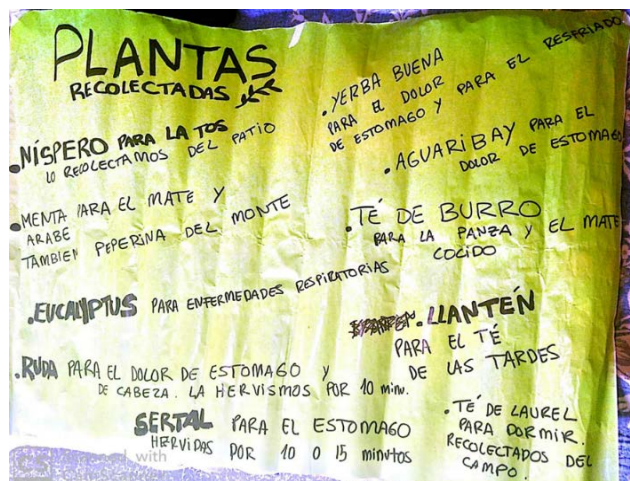 PLANTAS
RECOLECTADAS
.NÍSPERO PARA LA TOS
LO RECOLECTAMOS DEL PATIO
.MENTA PARA EL MATE Y
ARABE
TAMBIEN PEPERINA DEL MONTE
.EUCALYPTUS PARA ENFERMEDADES RESPIRATORIAS
.RUDA PARA EL DOLOR DE ESTOMAGO Y
DE CABEZA. LA HERVISMOS POR 10 minu.
SERTAL PARA EL ESTOMAGO
HERVIDAS POR 10 O 15 minutos
.YERBA BUENA
PARA EL DOLOR
DE ESTOMAGO Y PARA EL RESFRIADO
.AGUARIBAY PARA EL
DOLOR DE ESTOMAGO
.TÉ DE BURRO
PARA LA PANZA Y EL MATE
COCIDO
.LLANTEÉN
PARA EL TÉ
DE LAS TARDES
.TÉ DE LAUREL
PARA DORMIR.
RECOLECTADOS DEL
CAMPO.
CS with
CamScanner